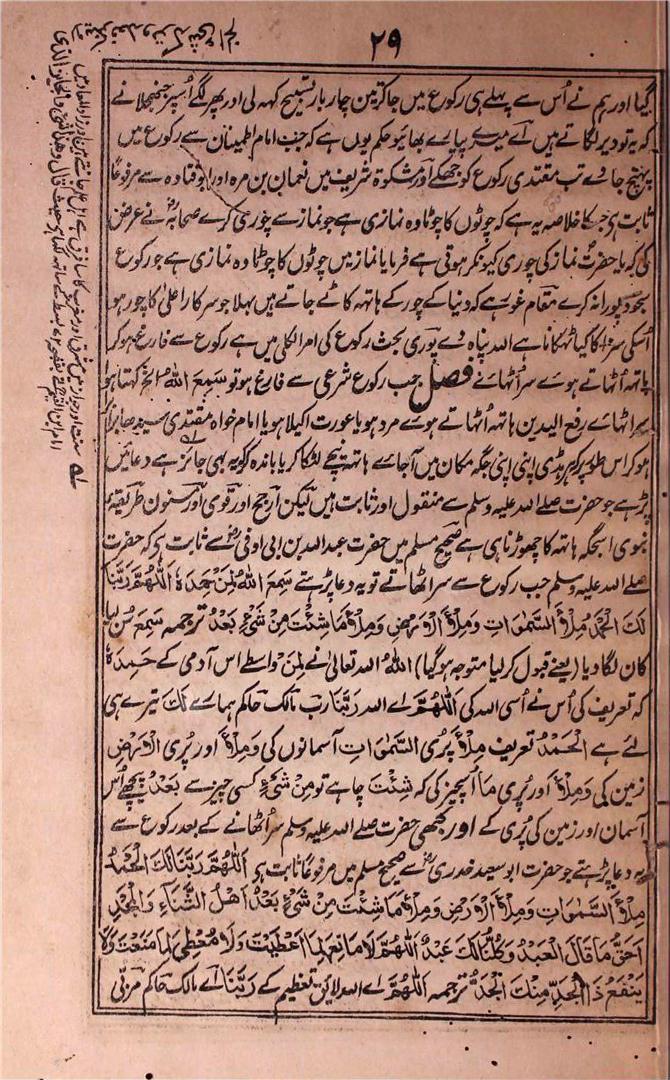 ۲۹
گیا اور ہم نے اُس سے پہلے ہی رکوع میں جا کر تین چار بار تسبیح کہہ لی اور پھر لگے اُسپر جھنجھلانے
کہ یہ تو دیر لگاتے ہیں اَے میرے پیارے بھائیو حکم یوں ہے کہ جب امام اطمینان سے رکوع میں
پہنچ جاوے تب مقتدی رکوع کو جھکے اور مشکوٰۃ شریف میں نعمان بن مرہ اور ابو قتادہ سے مرفوعًا
ثابت ہی جسکا خلاصہ یہ ہے کہ چوٹوں کا چوٹا وہ نمازی ہے جو نماز سے چوری کرے صحابہؓ نے عرض
کی کہ یا حضرت نماز کی چوری کیونکر ہوتی ہے فرمایا نماز میں چوٹوں کا چوٹا وہ نمازی ہے جو رکوع
سجود پورا نہ کرے مقام غور ہے کہ دنیا کے چور کے ہاتہ کاٹے جاتے ہیں بہلا جو سرکار اعلیٰ کا چور ہو
اُسکی سزا کا کیا ٹھکانا ہے اللہ پناہ دے پوری بحث رکوع کی امر الکلی میں ہے رکوع سے فارغ ہو کر
ہاتہ اُٹھاتے ہوے سر اُٹھانے فصل جب رکوع شرعی سے فارغ ہو تو سَمِعَ اللهُ الخ کہتا ہوا
سر اٹھاے رفع الیدین ہاتہ اُٹھاتے ہوے مرد ہو یا عورت اکیلا ہو یا امام خواہ مقتدی سیدھا برابر
ہو کر اس طور پر کہ ہر ہڈی اپنی اپنی جگہ مکان میں آجاے ہاتہ نیچے لٹکا کر یا باندہ کو یہ بھی جائز ہے دعائیں
پڑہے جو حضرت صلے اللہ علیہ وسلم سے منقول اور ثابت ہیں لیکن اَرجح اور قوی اور مسنون طریقہ
نبوی اسجگہ ہاتہ کا چھوڑنا ہی ہے صحیح مسلم میں حضرت عبد اللہ بن ابی اوفیٰ سے ثابت ہی کہ حضرت
صلے اللہ علیہ وسلم جب رکوع سے سر اٹھاتے تو یہ دعا پڑہتے سَمِعَ اللهُ لِمَنْ حَمِدَهٗ اَللّٰهُمَّ رَبَّنَا
لَكَ الْحَمْدُ مِلْأَ السَّمٰوَاتِ وَمِلْأَ الْاَرْضِ وَمِلْأَ مَا شِئْتَ مِنْ شَيْءٍ بَعْدُ ترجمہ سَمِعَ سن لیا
کان لگا دیا (یعنے قبول کر لیا متوجہ ہوگیا) اَللهُ اللہ تعالیٰ نے لِمَنْ واسطے اس آدمی کے حَمِدَهٗ
کہ تعریف کی اُس نے اُسی اللہ کی اَللّٰهُمَّ اے اللہ رَبَّنَا رب مالک حاکم ہمارے لَكَ تیرے ہی
لئے ہے اَلْحَمْدُ تعریف مِلْأَ پُری السَّمٰوَاتِ آسمانوں کی وَمِلْأَ اور پُری الْاَرْضِ
زمین کی وَمِلْأَ اور پُری مَا اُسچیز کی کہ شِئْتَ چاہے تو مِنْ شَيْءٍ کسی چیز سے بَعْدُ پیچھے اُس
آسمان اور زمین کی پُری کے اور کبھی حضرت صلے اللہ علیہ وسلم سر اُٹھانے کے بعد رکوع سے
یہ دعا پڑہتے جو حضرت ابو سعید خدری سے صحیح مسلم میں مرفوعًا ثابت ہی اَللّٰهُمَّ رَبَّنَا لَكَ الْحَمْدُ
مِلْأَ السَّمٰوَاتِ وَمِلْأَ الْاَرْضِ وَمِلْأَ مَا شِئْتَ مِنْ شَيْءٍ بَعْدُ اَهْلَ الثَّنَاءِ وَالْمَجْدِ
اَحَقُّ مَا قَالَ الْعَبْدُ وَكُلُّنَا لَكَ عَبْدٌ اَللّٰهُمَّ لَا مَانِعَ لِمَا اَعْطَيْتَ وَلَا مُعْطِيَ لِمَا مَنَعْتَ وَلَا
يَنْفَعُ ذَا الْجَدِّ مِنْكَ الْجَدُّ ترجمہ اَللّٰهُمَّ اے اللہ لائق تعظیم کے رَبَّنَا اے مالک حاکم مربی